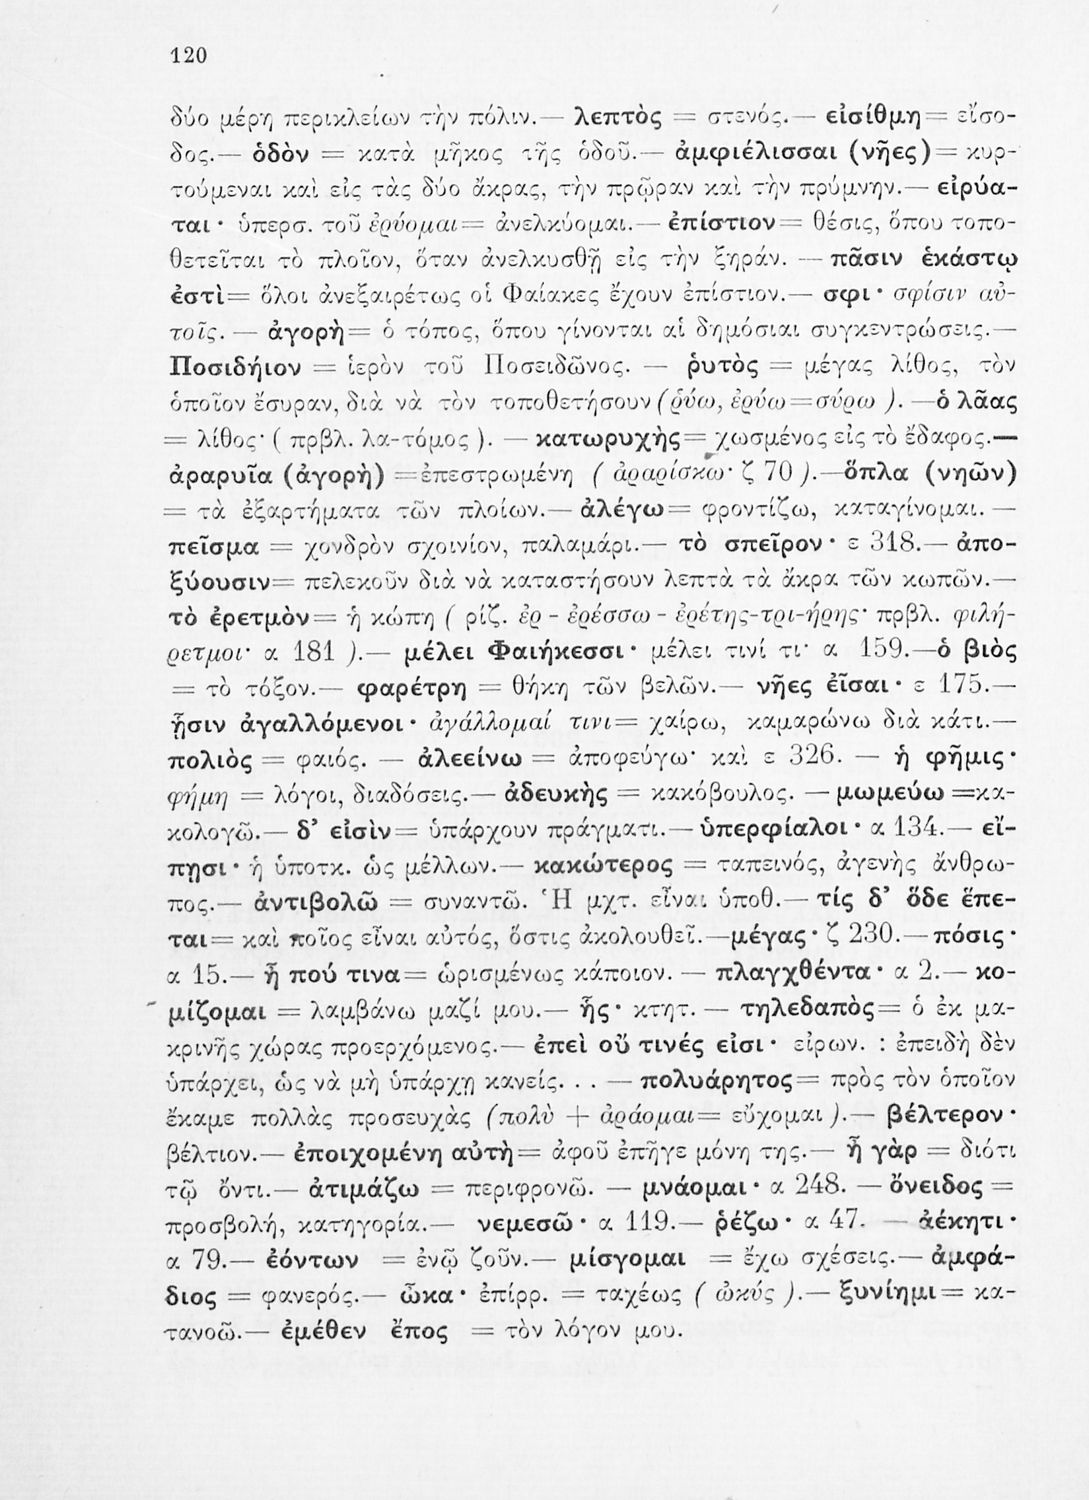 120
δύο μέρη περικλείων τὴν πόλιν.— λεπτὸς = στενός.— εἰσίθμη= εἴσο-
δος.— ὁδὸν = κατὰ μῆκος τῆς ὁδοῦ.— ἀμφιέλισσαι (νῆες)= κυρ-
τούμεναι καὶ εἰς τὰς δύο ἄκρας, τὴν πρῷραν καὶ τὴν πρύμνην.— εἰρύα-
ται· ὑπερσ. τοῦ ἐρύομαι= ἀνελκύομαι.— ἐπίστιον= θέσις, ὅπου τοπο-
θετεῖται τὸ πλοῖον, ὅταν ἀνελκυσθῇ εἰς τὴν ξηράν. — πᾶσιν ἑκάστῳ
ἐστὶ= ὅλοι ἀνεξαιρέτως οἱ Φαίακες ἔχουν ἐπίστιον.— σφι· σφίσιν αὐ-
τοῖς. — ἀγορὴ= ὁ τόπος, ὅπου γίνονται αἱ δημόσιαι συγκεντρώσεις.—
Ποσιδήιον = ἱερὸν τοῦ Ποσειδῶνος. — ῥυτὸς = μέγας λίθος, τὸν
ὁποῖον ἔσυραν, διὰ νὰ τὸν τοποθετήσουν (ῥύω, ἐρύω=σύρω ). —ὁ λᾶας
= λίθος· ( πρβλ. λα-τόμος ). — κατωρυχὴς= χωσμένος εἰς τὸ ἔδαφος.—
ἀραρυῖα (ἀγορὴ) =ἐπεστρωμένη ( ἀραρίσκω· ζ 70 ).—ὅπλα (νηῶν)
= τὰ ἐξαρτήματα τῶν πλοίων.— ἀλέγω= φροντίζω, καταγίνομαι. —
πεῖσμα = χονδρὸν σχοινίον, παλαμάρι.— τὸ σπεῖρον· ε 318.— ἀπο-
ξύουσιν= πελεκοῦν διὰ νὰ καταστήσουν λεπτὰ τὰ ἄκρα τῶν κωπῶν.—
τὸ ἐρετμὸν= ἡ κώπη ( ρίζ. ἐρ - ἐρέσσω - ἐρέτης-τρι-ήρης· πρβλ. φιλή-
ρετμοι· α 181 ).— μέλει Φαιήκεσσι· μέλει τινί τι· α 159.—ὁ βιὸς
= τὸ τόξον.— φαρέτρη = θήκη τῶν βελῶν.— νῆες ἐῖσαι· ε 175.—
ᾗσιν ἀγαλλόμενοι· ἀγάλλομαί τινι= χαίρω, καμαρώνω διὰ κάτι.—
πολιὸς = φαιός. — ἀλεείνω = ἀποφεύγω· καὶ ε 326. — ἡ φῆμις·
φήμη = λόγοι, διαδόσεις.— ἀδευκὴς = κακόβουλος. — μωμεύω =κα-
κολογῶ.— δ’ εἰσὶν= ὑπάρχουν πράγματι.— ὑπερφίαλοι· α 134.— εἴ-
πῃσι· ἡ ὑποτκ. ὡς μέλλων.— κακώτερος = ταπεινός, ἀγενὴς ἄνθρω-
πος.— ἀντιβολῶ = συναντῶ. Ἡ μχτ. εἶναι ὑποθ.— τίς δ’ ὅδε ἕπε-
ται= καὶ ποῖος εἶναι αὐτός, ὅστις ἀκολουθεῖ.—μέγας· ζ 230.—πόσις·
α 15.— ἦ πού τινα= ὡρισμένως κάποιον. — πλαγχθέντα· α 2.— κο-
μίζομαι = λαμβάνω μαζί μου.— ἧς· κτητ. — τηλεδαπὸς= ὁ ἐκ μα-
κρινῆς χώρας προερχόμενος.— ἐπεὶ οὔ τινές εἰσι· εἰρων. : ἐπειδὴ δὲν
ὑπάρχει, ὡς νὰ μὴ ὑπάρχῃ κανείς. . . — πολυάρητος= πρὸς τὸν ὁποῖον
ἔκαμε πολλὰς προσευχὰς (πολὺ + ἀράομαι= εὔχομαι ).— βέλτερον·
βέλτιον.— ἐποιχομένη αὐτὴ= ἀφοῦ ἐπῆγε μόνη της.— ἦ γὰρ = διότι
τῷ ὄντι.— ἀτιμάζω = περιφρονῶ. — μνάομαι· α 248. — ὄνειδος =
προσβολή, κατηγορία.— νεμεσῶ· α 119.— ῥέζω· α 47. — ἀέκητι·
α 79.— ἐόντων = ἐνῷ ζοῦν.— μίσγομαι = ἔχω σχέσεις.— ἀμφά-
διος = φανερός.— ὦκα· ἐπίρρ. = ταχέως ( ὠκύς ).— ξυνίημι= κα-
τανοῶ.— ἐμέθεν ἔπος = τὸν λόγον μου.